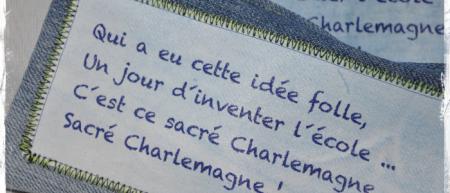 Qui a eu cette idée folle,
Un jour d'inventer l'école ...
C'est ce sacré Charlemagne
Sacré Charlemagne !
Charlemagne